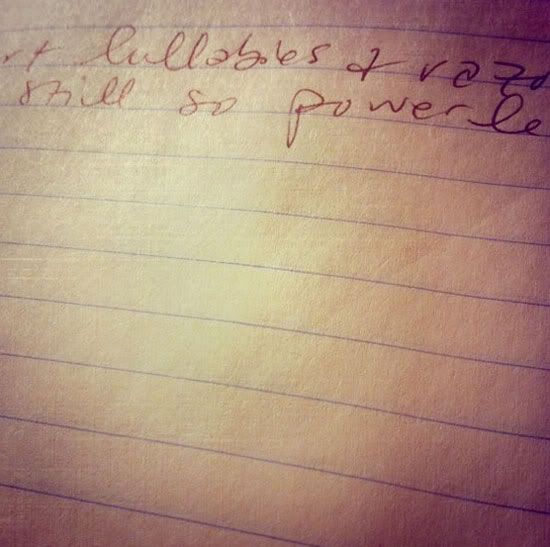 rt lullabies & razo
still so powerle